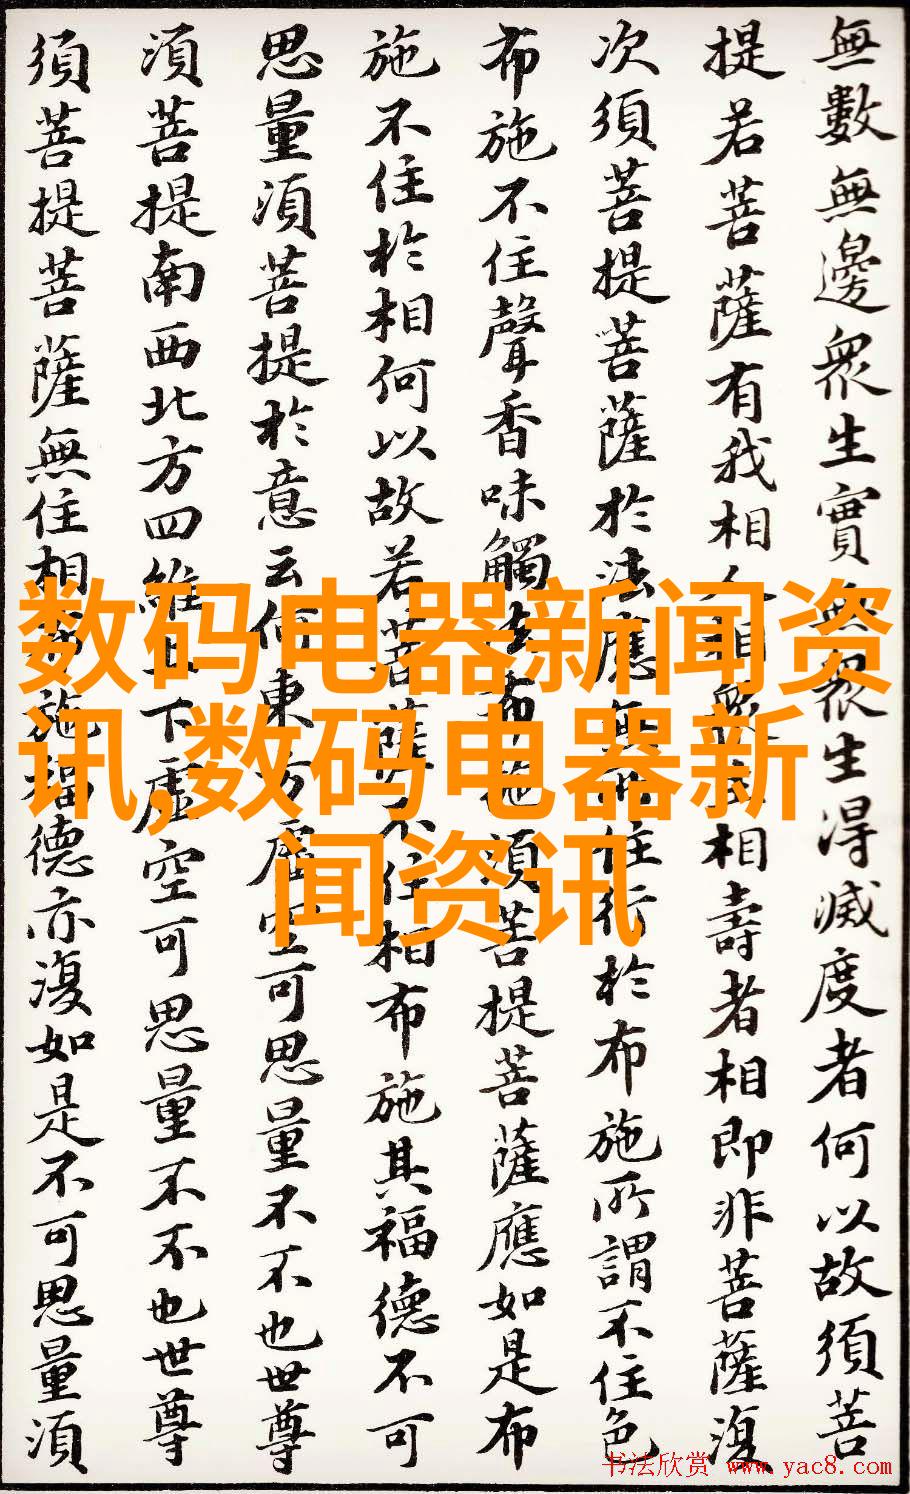 無數無邊眾生實無眾生得滅度者何以故須菩
提若菩薩有我相人相眾生相壽者相即非菩薩復
次須菩提菩薩於法應無所住行於布施所謂不住色
布施不住聲香味觸法布施須菩提菩薩應如是布
施不住於相何以故若菩薩不住相布施其福德不可
思量須菩提於意云何東方虛空可思量不不也世尊
須菩提南西北方四維上下虛空可思量不不也世尊
須菩提菩薩無住相布施福德亦復如是不可思量須
数码电器新闻资
讯,数码电器新
闻资讯
书法欣赏 www.yac8.com